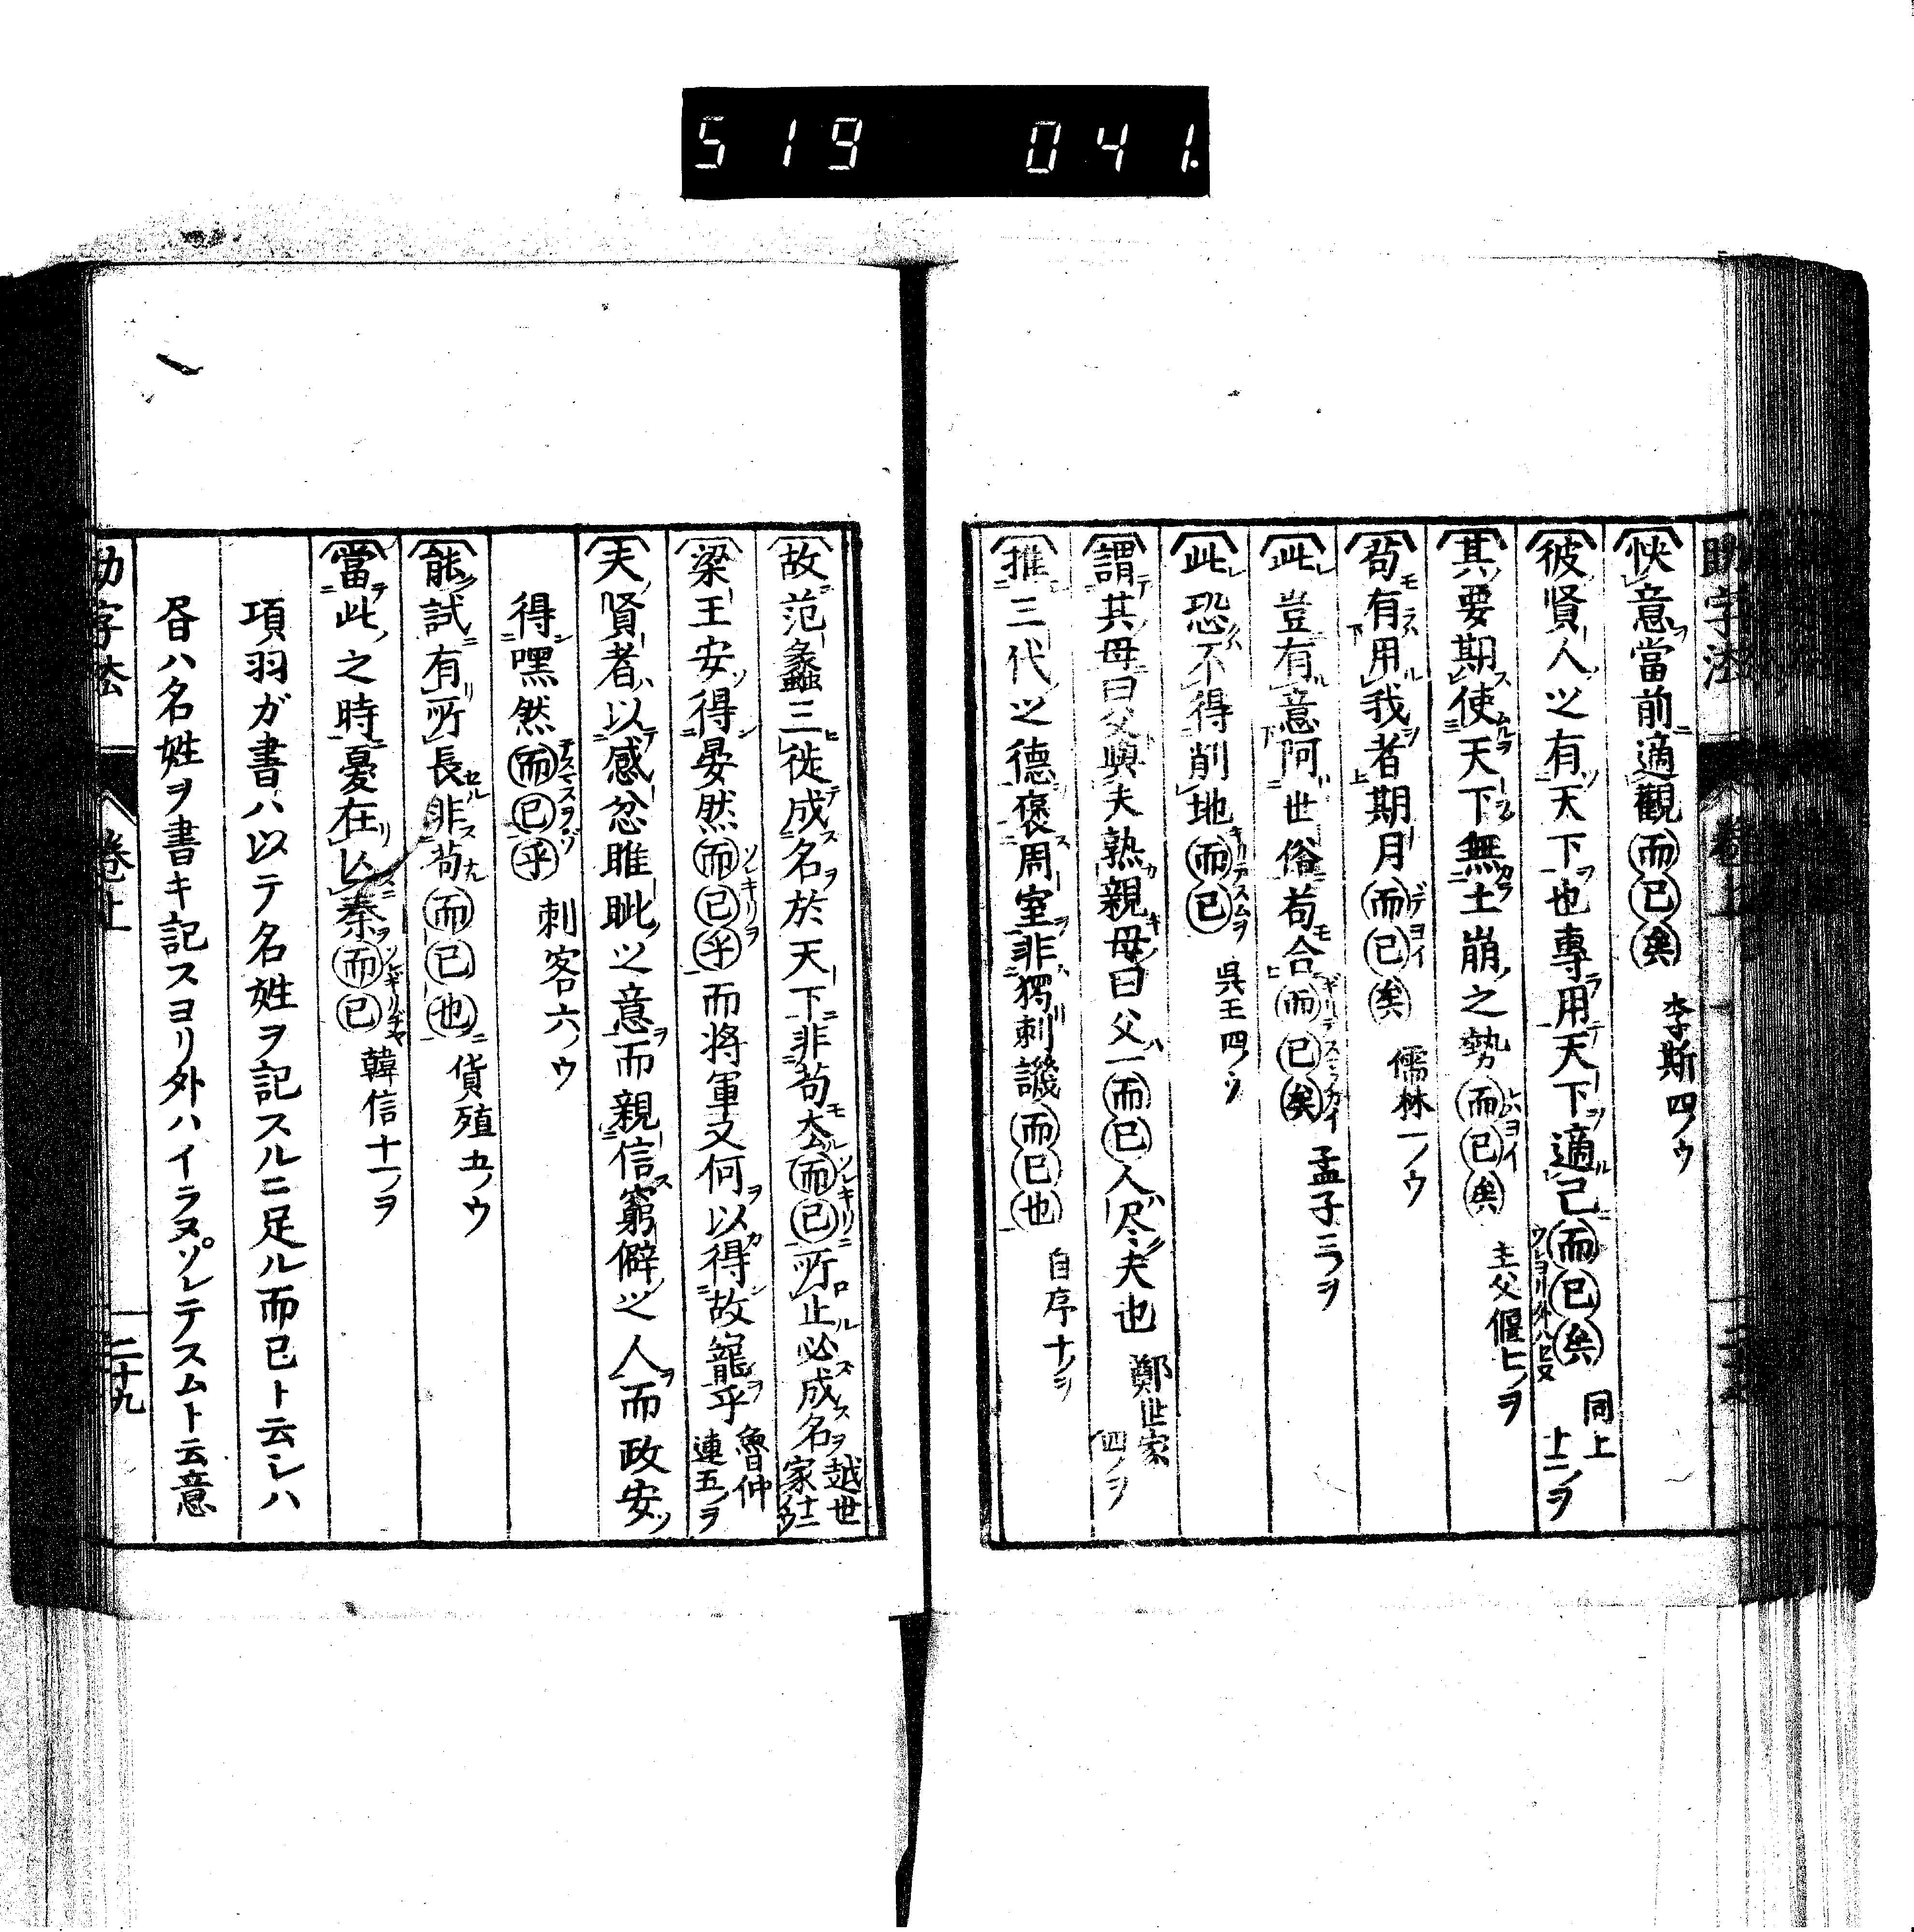 519 041.
快意當前適觀而已矣 李斯四ノウ
彼賢人之有天下也專用天下適己而已矣 同上 十二ノヲ
其要期使天下無土崩之勢而已矣 主父偃七ノヲ
苟有用我者期月而已矣 儒林一ノウ
此豈有意阿世俗苟合而已矣 孟子三ノヲ
此恐不得削地而已 呉王四ノウ
謂其母曰父與夫熟親母曰父一而已人尽夫也 鄭世家 四ノヲ
推三代之德褒周室非獨刺譏而已也 自序十ノウ
故范蠡三徙成名於天下非苟去而已所止必成名 越世家十二ノウ
梁王安得晏然而已乎而将軍又何以得故寵乎 魯仲連五ノヲ
夫賢者以感忿睢眦之意而親信窮僻之人而政安
得嘿然而已乎 刺客六ノウ
能試有所長非苟而已也 貨殖五ノウ
當此之時憂在亾秦而已 韓信十一ノヲ
項羽ガ書ハ以テ名姓ヲ記スルニ足ル而已ト云シハ
昏ハ名姓ヲ書キ記スヨリ外ハイラヌソレテスムト云意
助字法 卷上 二十九